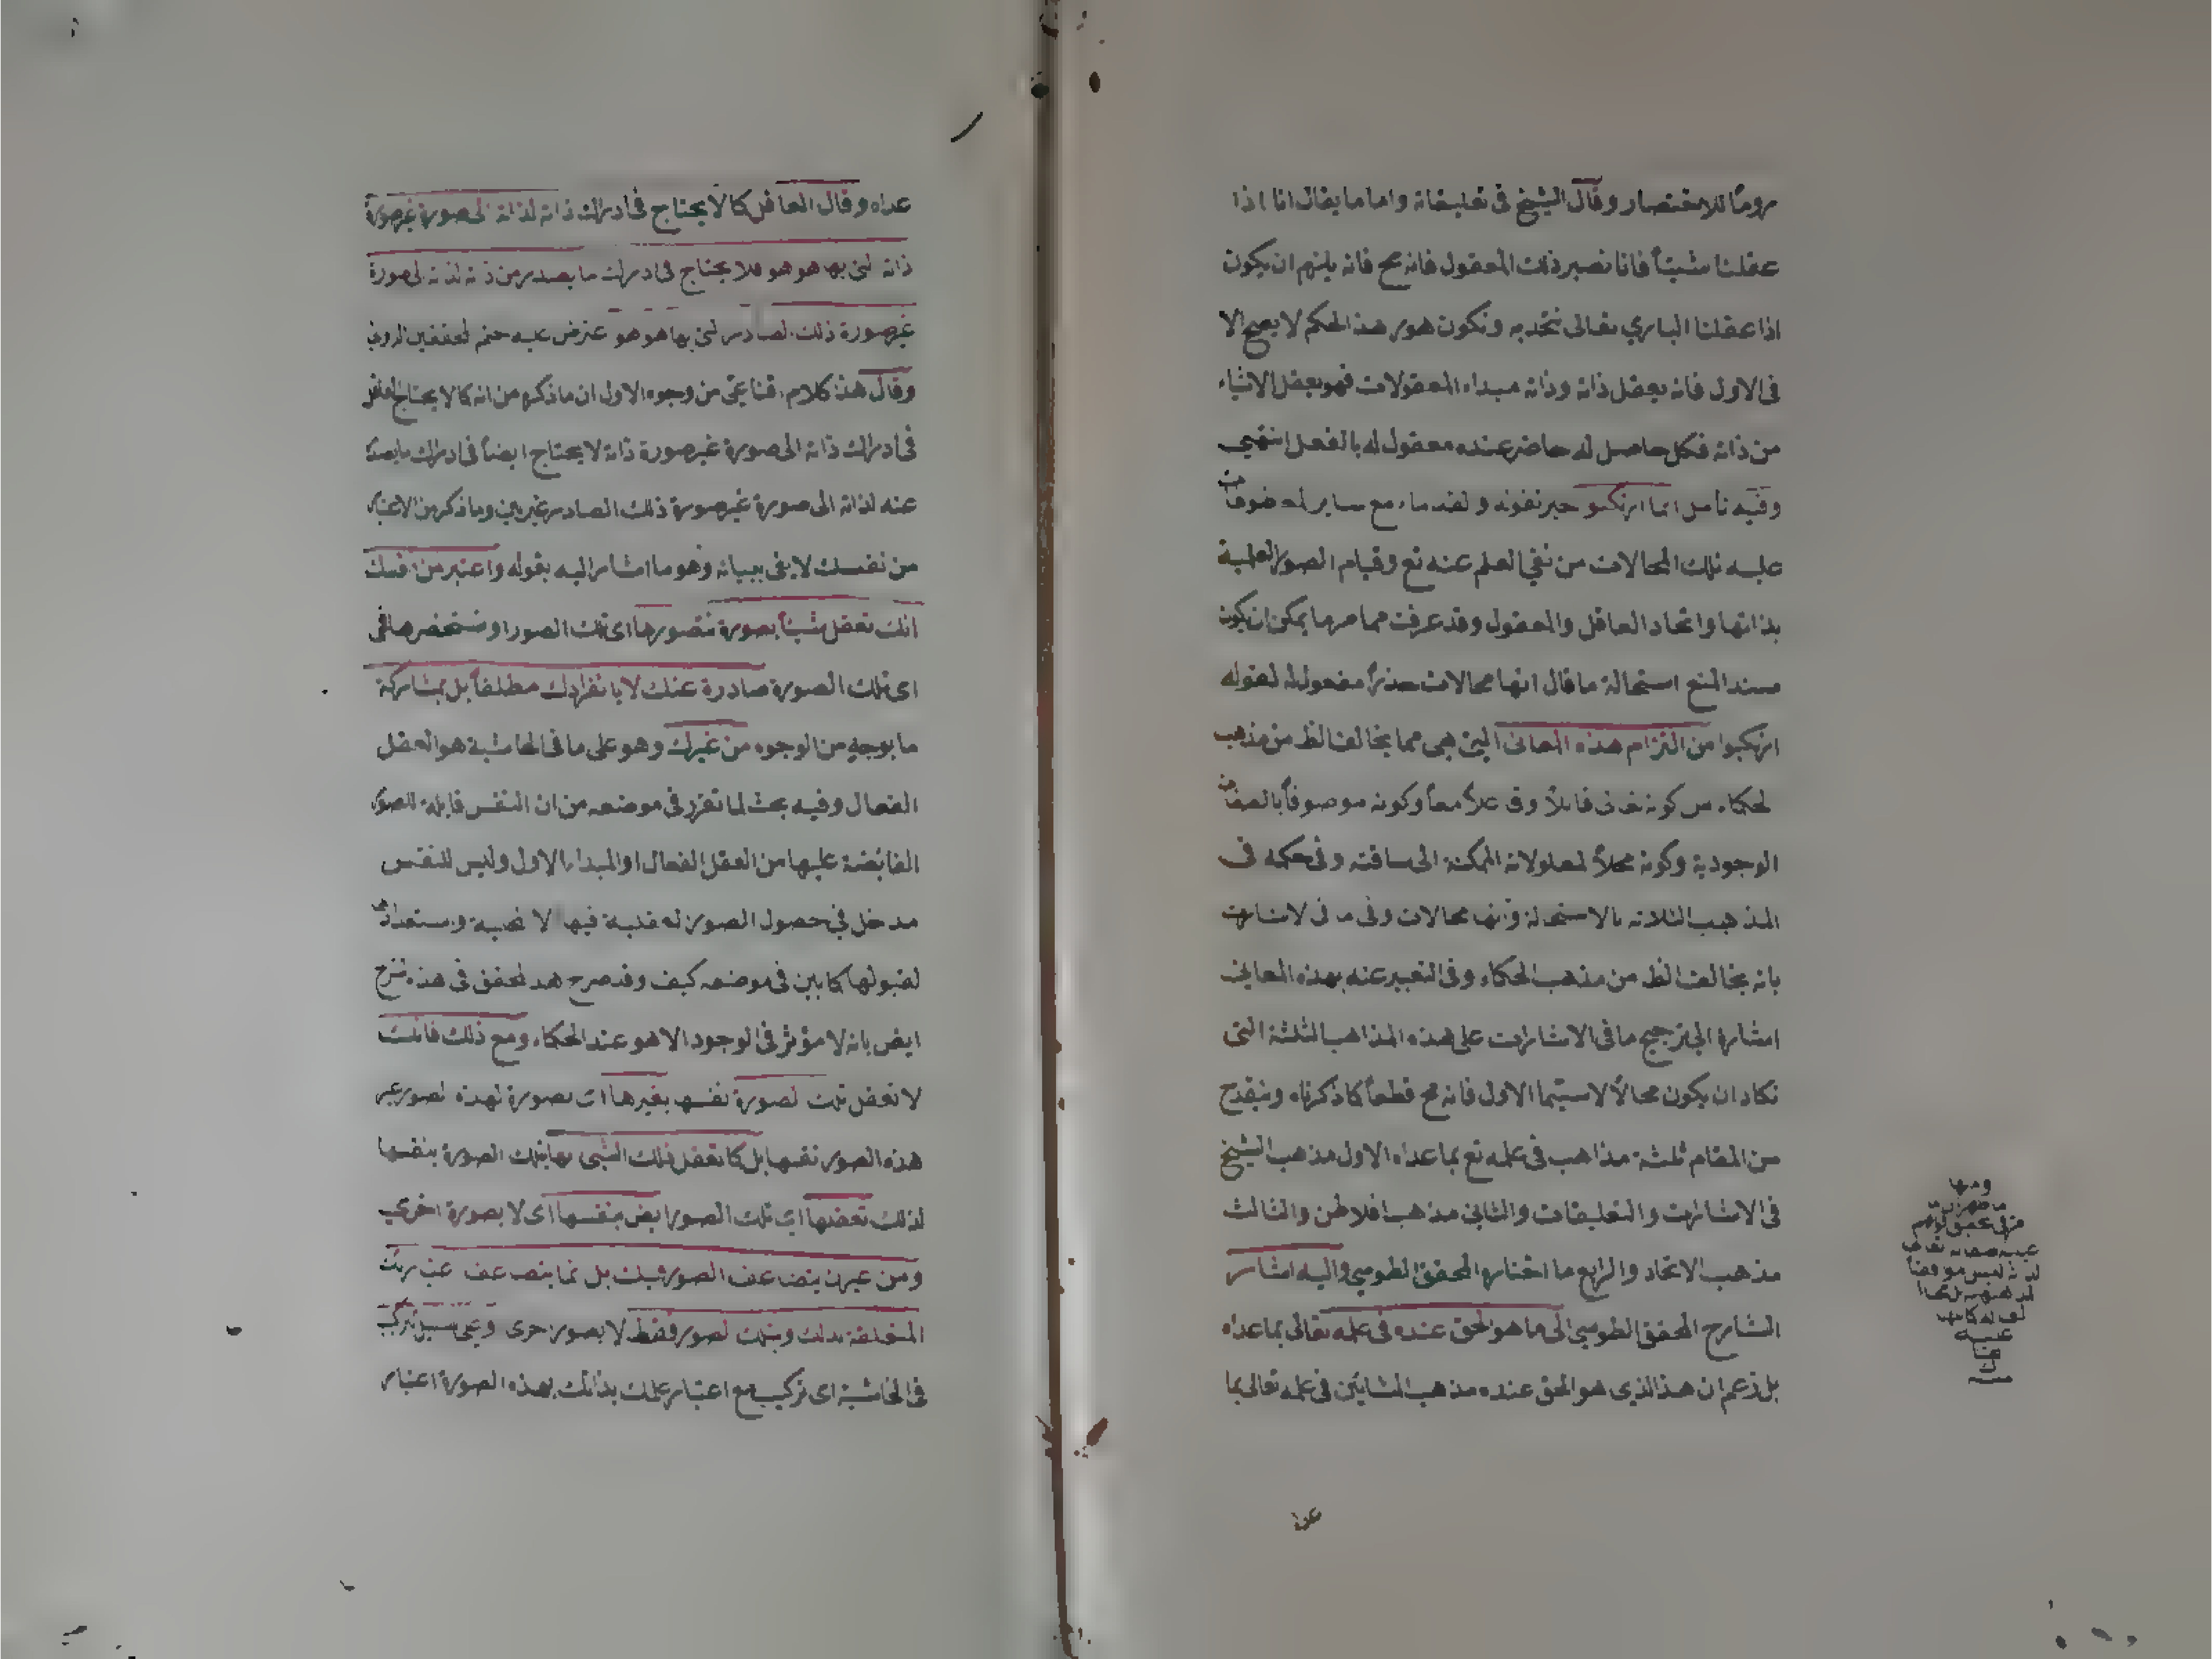 روما للاختصار وقال الشيخ فى تعليقاته واما ما يقال انا اذا
عقلنا شيئا فانا نصير ذلك المعقول فانه مح فانه يلزم ان يكون
اذا عقلنا الباري تعالى نتحد به ونكون هو هذا الحكم لا يصح الا
فى الاول فانه يعقل ذاته وذاته مبداء المعقولات فهو يعقل الاشياء
من ذاته فكل حاصل له حاضر عنده معقول له بالفعل انتهى
وفيه تأمل انما ارتكبو حير نفونه و لقدماء مع ساير
عليه تلك المحالات من نفي العلم عنه تع وقيام الصور العلمية
بذاتها واتحاد العاقل والمعقول وقد عرفت مما مر ما يمكن ان يكون
سند المنع استحالة ما قال انها محالات حذرا مفعول له لقوله
ارتكبوا من التزام هذه المعانى التى هى مما يخالف الظ من مذهب
الحكاء من كونه تعالى قابلا وفاعلا معا وكونه موصوفا بالصفات
الوجودية وكونه محلا لمعلولاته الممكنة الى ساقته وفى حكمه فى
المذهب الثلاثة بالاستحالة وانها محالات وفى ما فى الاشارات
بانه يخالف الظ من مذهب الحكاء وفى التعبير عنه بهذه المعانى
اشارة الى ترجيح ما فى الاشارات على هذه المذاهب الثلثة التى
تكاد ان يكون محالا لا سيتما الاول فانه مح قطعا كا ذكرناه وينقدح
من المقام ثلثة مذاهب فى علمه تع بما عداه الاول مذهب الشيخ
فى الاشارات والتعليقات والثانى مذهب افلاطن والثالث
مذهب الاتحاد والرابع ما اختاره المحقق الطوسي واليه اشار
الشارح المحقق الطوسي الى ما هو الحق عنده فى علمه تعالى بما عداه
بل زعم ان هذا الذى هو الحق عنده مذهب المشائين فى علمه تعالى بما
عن
ومنها
عليه
منه
عداه وقال العاقل كا لا يحتاج فى ادراك ذاته لذاته الى صورة غير صورة
ذاته التى بها هو هو فلا يحتاج فى ادراك ما يصدر من ذاته لذاته الى صورة
غير صورة ذلك الصادر التى بها هو هو اعترض عليه خاتم المحققين الدوانى
وقال هذا كلام اقناعى من وجوه الاول ان ما ذكره من انه كا لا يحتاج العاقل
فى ادراك ذاته الى صورة غير صورة ذاته لا يحتاج ايضا فى ادراك ما يصدر
عنه لذاته الى صورة غير صورة ذلك الصادر غير بين وما ذكر من الاعتبار
من نفسك لا يفى ببيانه وهو ما اشار اليه بقوله واعتبر من نفسك
انك تعقل شيئا بصورة تتصورها اى تلك الصور او تستحضرها فهى
اى تلك الصورة صادرة عنك لا بانفرادك مطلقا بل بمشاركة
ما بوجه من الوجوه من غيرك وهو على ما فى الحاشية هو العقل
الفعال وفيه بحث لما تقرر فى موضعه من ان النفس قابلة للصور
الفائضة عليها من العقل الفعال او المبداء الاول وليس للنفس
مدخل فى حصول الصور له فيها الا قابلية واستعداد
لقبولها كا بين فى موضعه كيف وقد صرح هذ المحقق فى هذه شرح
ايض بانه لا مؤثر فى الوجود الا هو عند الحكاء ومع ذلك فانك
لا تعقل تلك الصورة نفسها بغيرها اى بصورة لهذه الصور غير
هذه الصور نفسها بل كا تعقل ذلك الشئ بها بتلك الصورة بنفسها
لذلك تعقلها اى تلك الصور ايض بنفسها اى لا بصورة اخرى
ومن غير ان يتضاعف الصور فيك بل انما يتضاعف اعتباراتك
المتعلقة بذلك وبتلك الصور فقط لا بصور اخرى وعلى سبيل التركيب
فى الحاشية اى تركيب مع اعتبار علمك بذاتك بهذه الصورة اعتبار